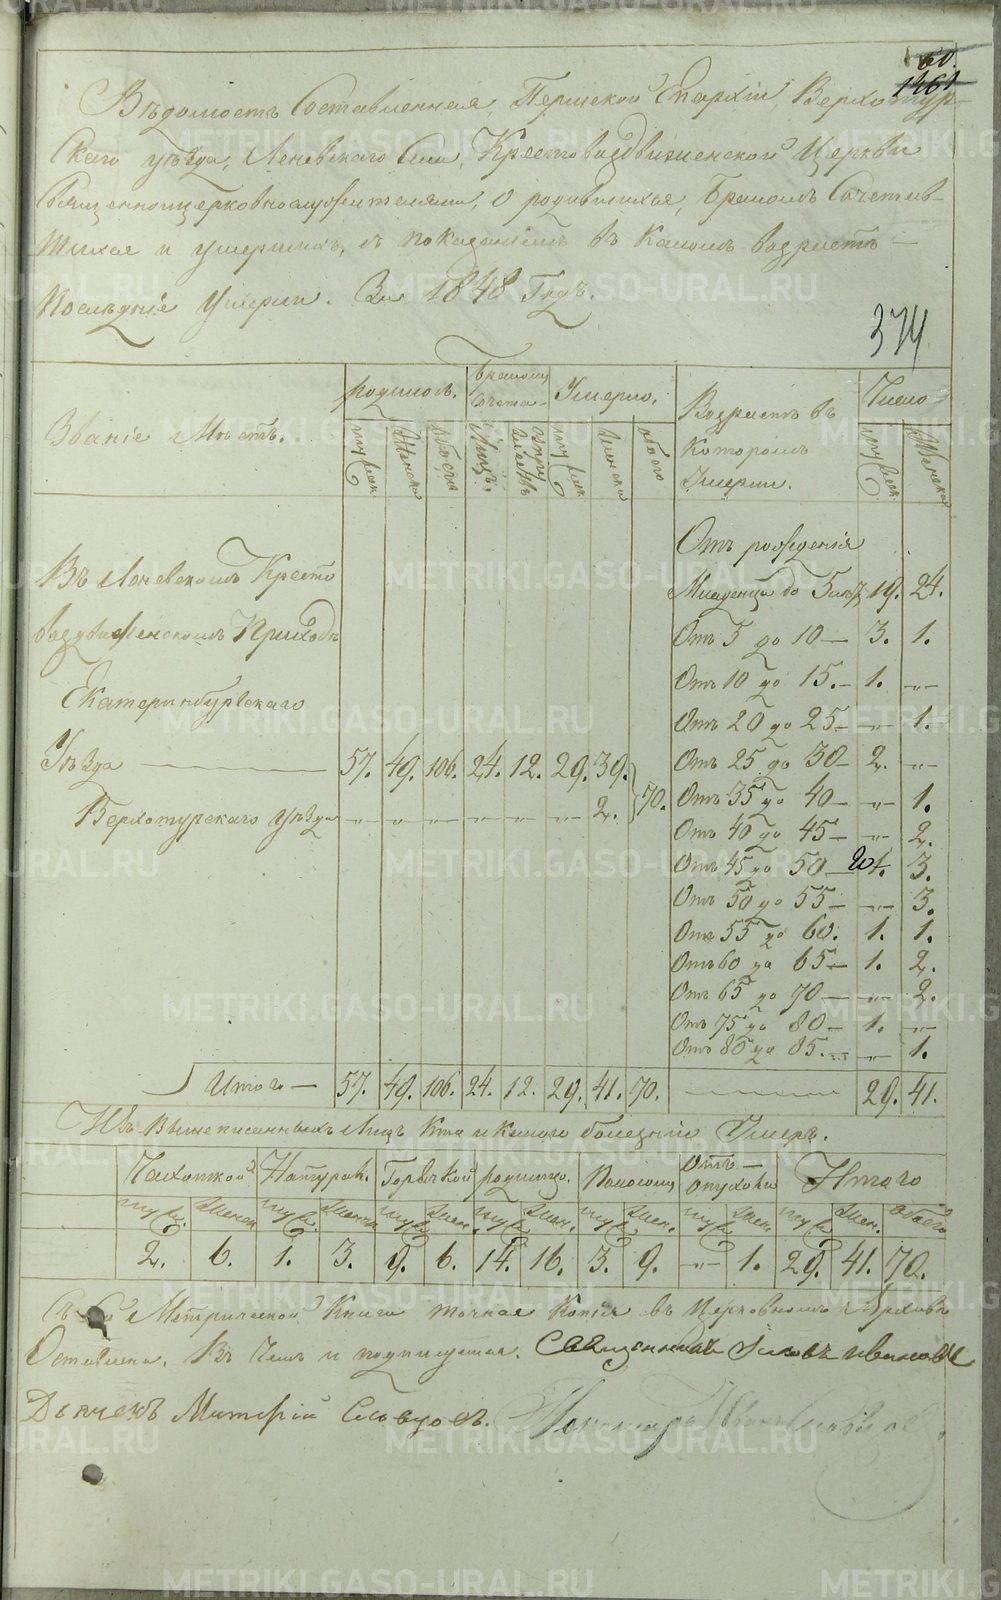 60.
1461
Вѣдомость Составленная, Пермской Епархіи, Верхотур-
скаго уѣзда, Леневскаго Села, Крестовоздвиженской Церкви
Священноцерковнослужителями, О родившихся, Бракомъ Сочетав-
шихся и умершихъ, съ показаніемъ въ какомъ возрастѣ
Послѣдніе Умерли. За 1848 Годъ.
374
Званіе Мѣстъ.
родилось.
бракомъ сочета-
Умерло.
Возрастъ въ которомъ Умерли.
Число
муж.
Женска
Обоего
Лицъ.
муж.
женска
обоего
муж.
Женска
Отъ рожденія
Въ Леневскомъ Кресто
Младенцы до 5 лѣт. 19. 24.
воздвиженскомъ Приходѣ
Отъ 5 до 10 — 3. 1.
Екатеринбургскаго
Отъ 10 до 15. — 1. —„—
Отъ 20 до 25 — —„— 1.
Уѣзда — 57. 49. 106. 24. 12. 29. 39.
Отъ 25 до 30 — 2. —„—
70.
Отъ 35 до 40 — —„— 1.
Верхотурскаго уѣзда —„— —„— —„— —„— —„— —„— 2.
Отъ 40 до 45 — —„— 2.
Отъ 45 до 50 — 3.
Отъ 50 до 55 — —„— 3.
Отъ 55 до 60. 1. 1.
Отъ 60 до 65 — 1. 2.
Отъ 65 до 70 — —„— 2.
Отъ 75 до 80 — 1. —„—
Отъ 80 до 85. —„— 1.
Итого — 57. 49. 106. 24. 12. 29. 41. 70. — 29. 41.
Изъ Вышеписанныхъ Лицъ Кто и Какою болезнію Умеръ.
Чахоткой Натурал. Горячкой родимц. Поносомъ Отъ Опухоли Итого
муж. Женск. муж. Женск. муж. Женск. муж. Женск. муж. Женск. муж. Женск. муж. Женск. обоего
2. 6. 1. 3. 9. 6. 14. 16. 3. 9. —„— 1. 29. 41. 70.
Съ сей Метрической Книги точная Копія въ Церковномъ Архивѣ
Оставлена. Въ Чемъ и подпишемся. Священникъ Іаковъ Ивановъ
Дьячекъ Митрій Словцовъ. Пономарь Иванъ
METRIKI.GASO-URAL.RU